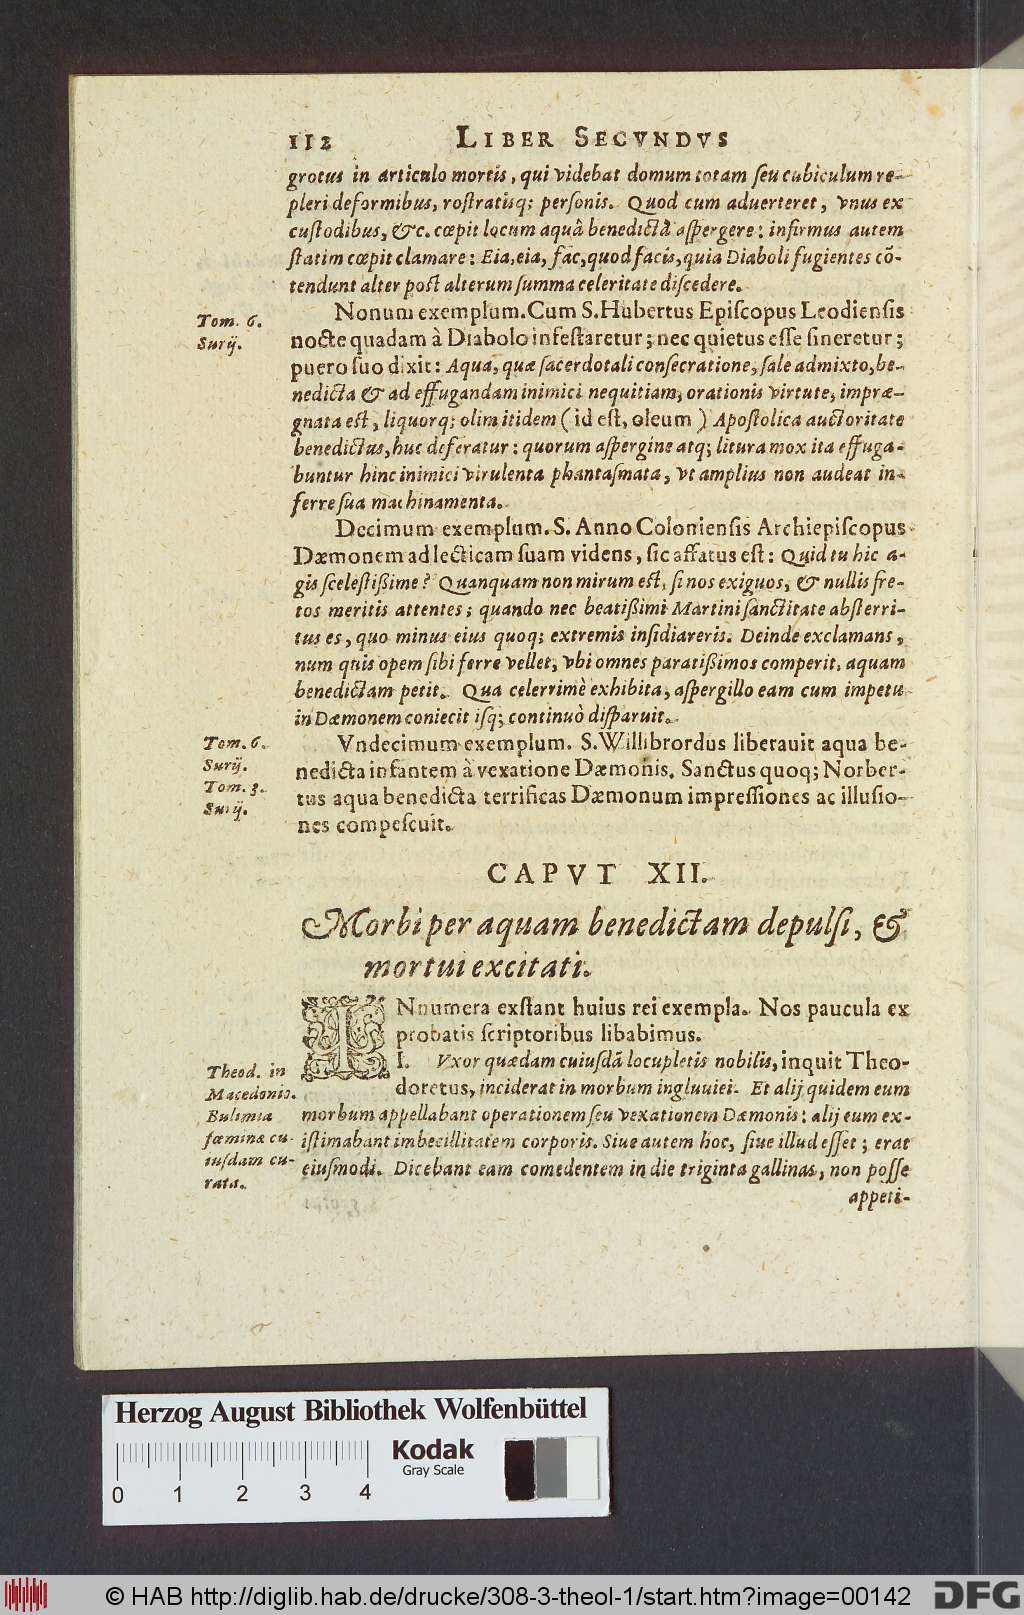 112 LIBER SECVNDVS
grotus in articulo mortis, qui videbat domum totam ſeu cubiculum re-
pleri deformibus, roſtratiſq; perſonis. Quod cum aduerteret, vnus ex
cuſtodibus, &c. cœpit locum aquâ benedictâ aſpergere: infirmus autem
ſtatim cœpit clamare: Eia, eia, fac, quod facis, quia Diaboli fugientes cō-
tendunt alter poſt alterum ſumma celeritate diſcedere.
Nonum exemplum. Cum S. Hubertus Epiſcopus Leodienſis
Tom. 6.
Surij.
nocte quadam à Diabolo infeſtaretur; nec quietus eſſe ſineretur;
puero ſuo dixit: Aqua, quæ ſacerdotali conſecratione, ſale admixto, be-
nedicta & ad effugandam inimici nequitiam, orationis virtute, impræ-
gnata eſt, liquorq; olim itidem (id eſt, oleum) Apoſtolica auctoritate
benedictus, huc deferatur: quorum aſpergine atq; litura mox ita effuga-
buntur hinc inimici virulenta phantaſmata, vt amplius non audeat in-
ferre ſua machinamenta.
Decimum exemplum. S. Anno Colonienſis Archiepiſcopus
Dæmonem ad lecticam ſuam videns, ſic affatus eſt: Quid tu hic a-
gis ſceleſtißime? Quanquam non mirum eſt, ſi nos exiguos, & nullis fre-
tos meritis attentes; quando nec beatißimi Martini ſanctitate abſterri-
tus es, quo minus eius quoq; extremis inſidiareris. Deinde exclamans,
num quis opem ſibi ferre vellet, vbi omnes paratißimos comperit, aquam
benedictam petit. Qua celerrimè exhibita, aſpergillo eam cum impetu
in Dæmonem coniecit iſq; continuò diſparuit.
Tom. 6.
Surij.
Tom. 3.
Surij.
Vndecimum exemplum. S. Willibrordus liberauit aqua be-
nedicta infantem à vexatione Dæmonis. Sanctus quoq; Norber-
tus aqua benedicta terrificas Dæmonum impreſſiones ac illuſio-
nes compeſcuit.
CAPVT XII.
Morbi per aquam benedictam depulſi, &
mortui excitati.
INnumera exſtant huius rei exempla. Nos paucula ex
probatis ſcriptoribus libabimus.
I. Vxor quædam cuiuſdā locupletis nobilis, inquit Theo-
doretus, inciderat in morbum ingluuiei. Et alij quidem eum
Theod. in
Macedonio.
Bulimia
fœminæ cu-
iuſdam cu-
rata.
morbum appellabant operationem ſeu vexationem Dæmonis: alij eum ex-
iſtimabant imbecillitatem corporis. Siue autem hoc, ſiue illud eſſet; erat
eiuſmodi. Dicebant eam comedentem in die triginta gallinas, non poſſe
appeti-
Herzog August Bibliothek Wolfenbüttel
Kodak
Gray Scale
0 1 2 3 4
© HAB http://diglib.hab.de/drucke/308-3-theol-1/start.htm?image=00142
DFG